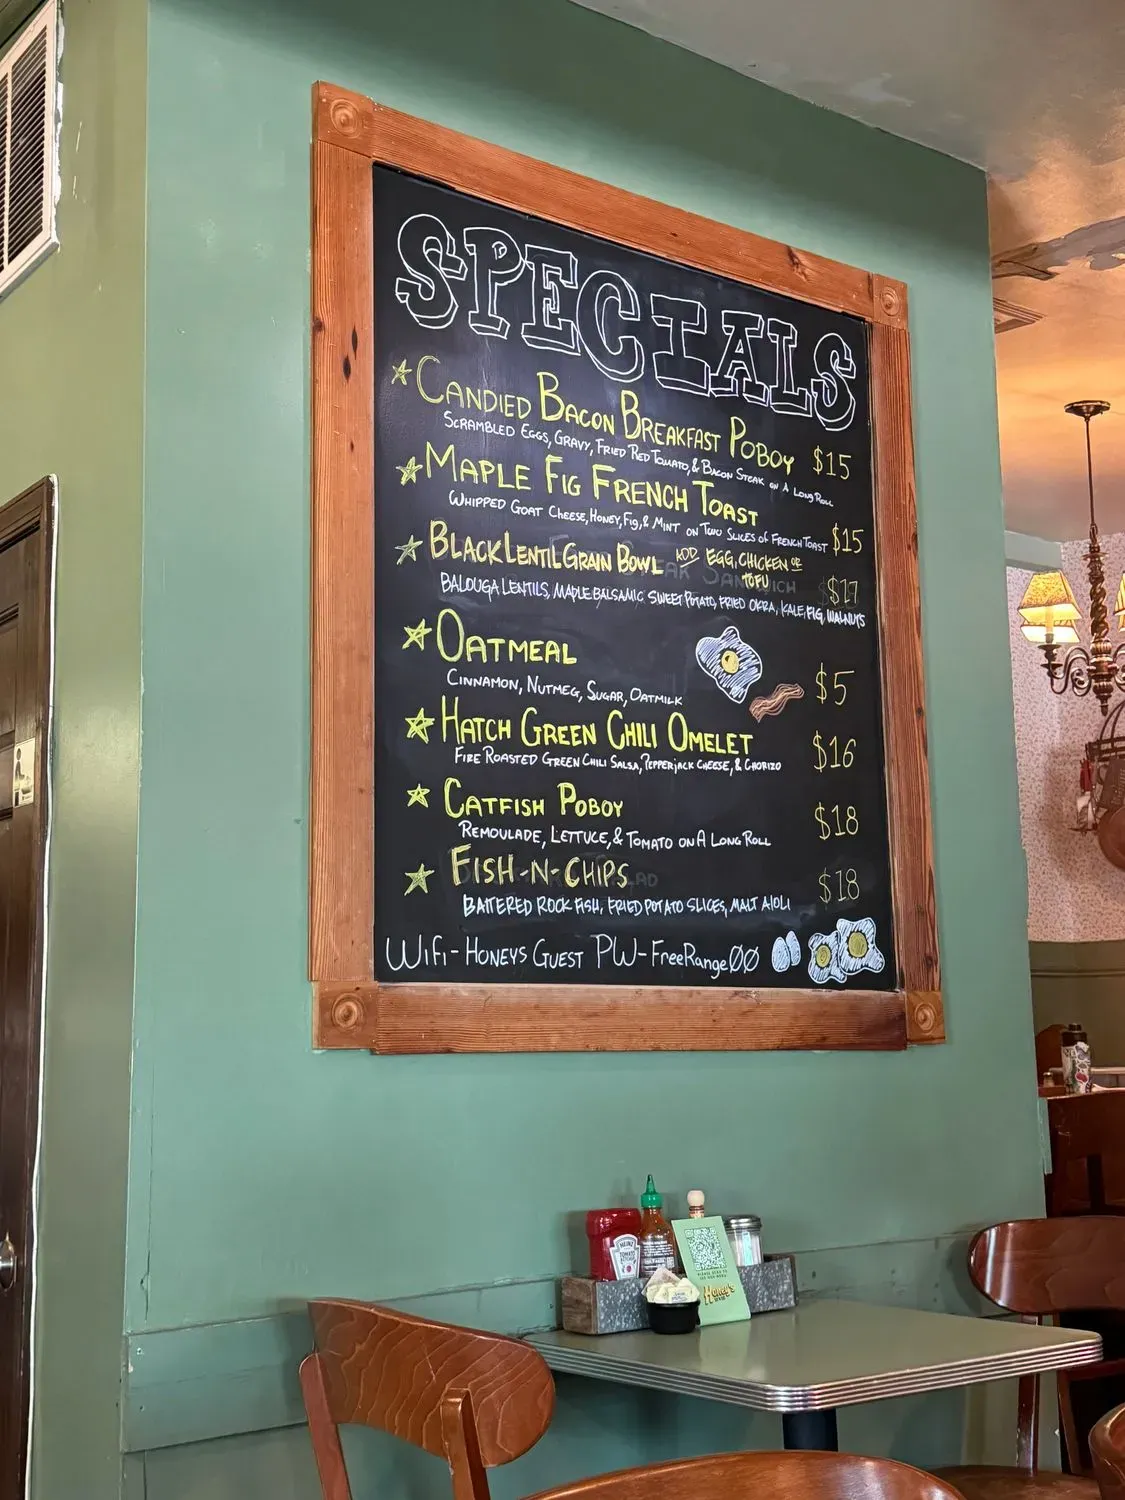 SPECIALS
CANDIED BACON BREAKFAST POBOY $15
SCRAMBLED EGGS, GRAVY, FRIED RED TOMATO, & BACON STEAK ON A LONG ROLL
MAPLE FIG FRENCH TOAST
WHIPPED GOAT CHEESE, HONEY, FIG, & MINT ON TWO SLICES OF FRENCH TOAST $15
BLACK LENTIL GRAIN BOWL ADD EGG, CHICKEN OR
TOFU
$17
BALOUGA LENTILS, MAPLE BALSAMIC SWEET POTATO, FRIED OKRA, KALE, FIG, WALNUTS
OATMEAL
CINNAMON, NUTMEG, SUGAR, OATMILK $5
HATCH GREEN CHILI OMELET $16
FIRE ROASTED GREEN CHILI SALSA, PEPPERJACK CHEESE, & CHORIZO
CATFISH POBOY $18
REMOULADE, LETTUCE, & TOMATO ON A LONG ROLL
FISH-N-CHIPS $18
BATTERED ROCK FISH, FRIED POTATO SLICES, MALT AIOLI
WiFi-HONEYS GUEST PW-FreeRange00
HEINZ
TOMATO
KETCHUP
Honey's